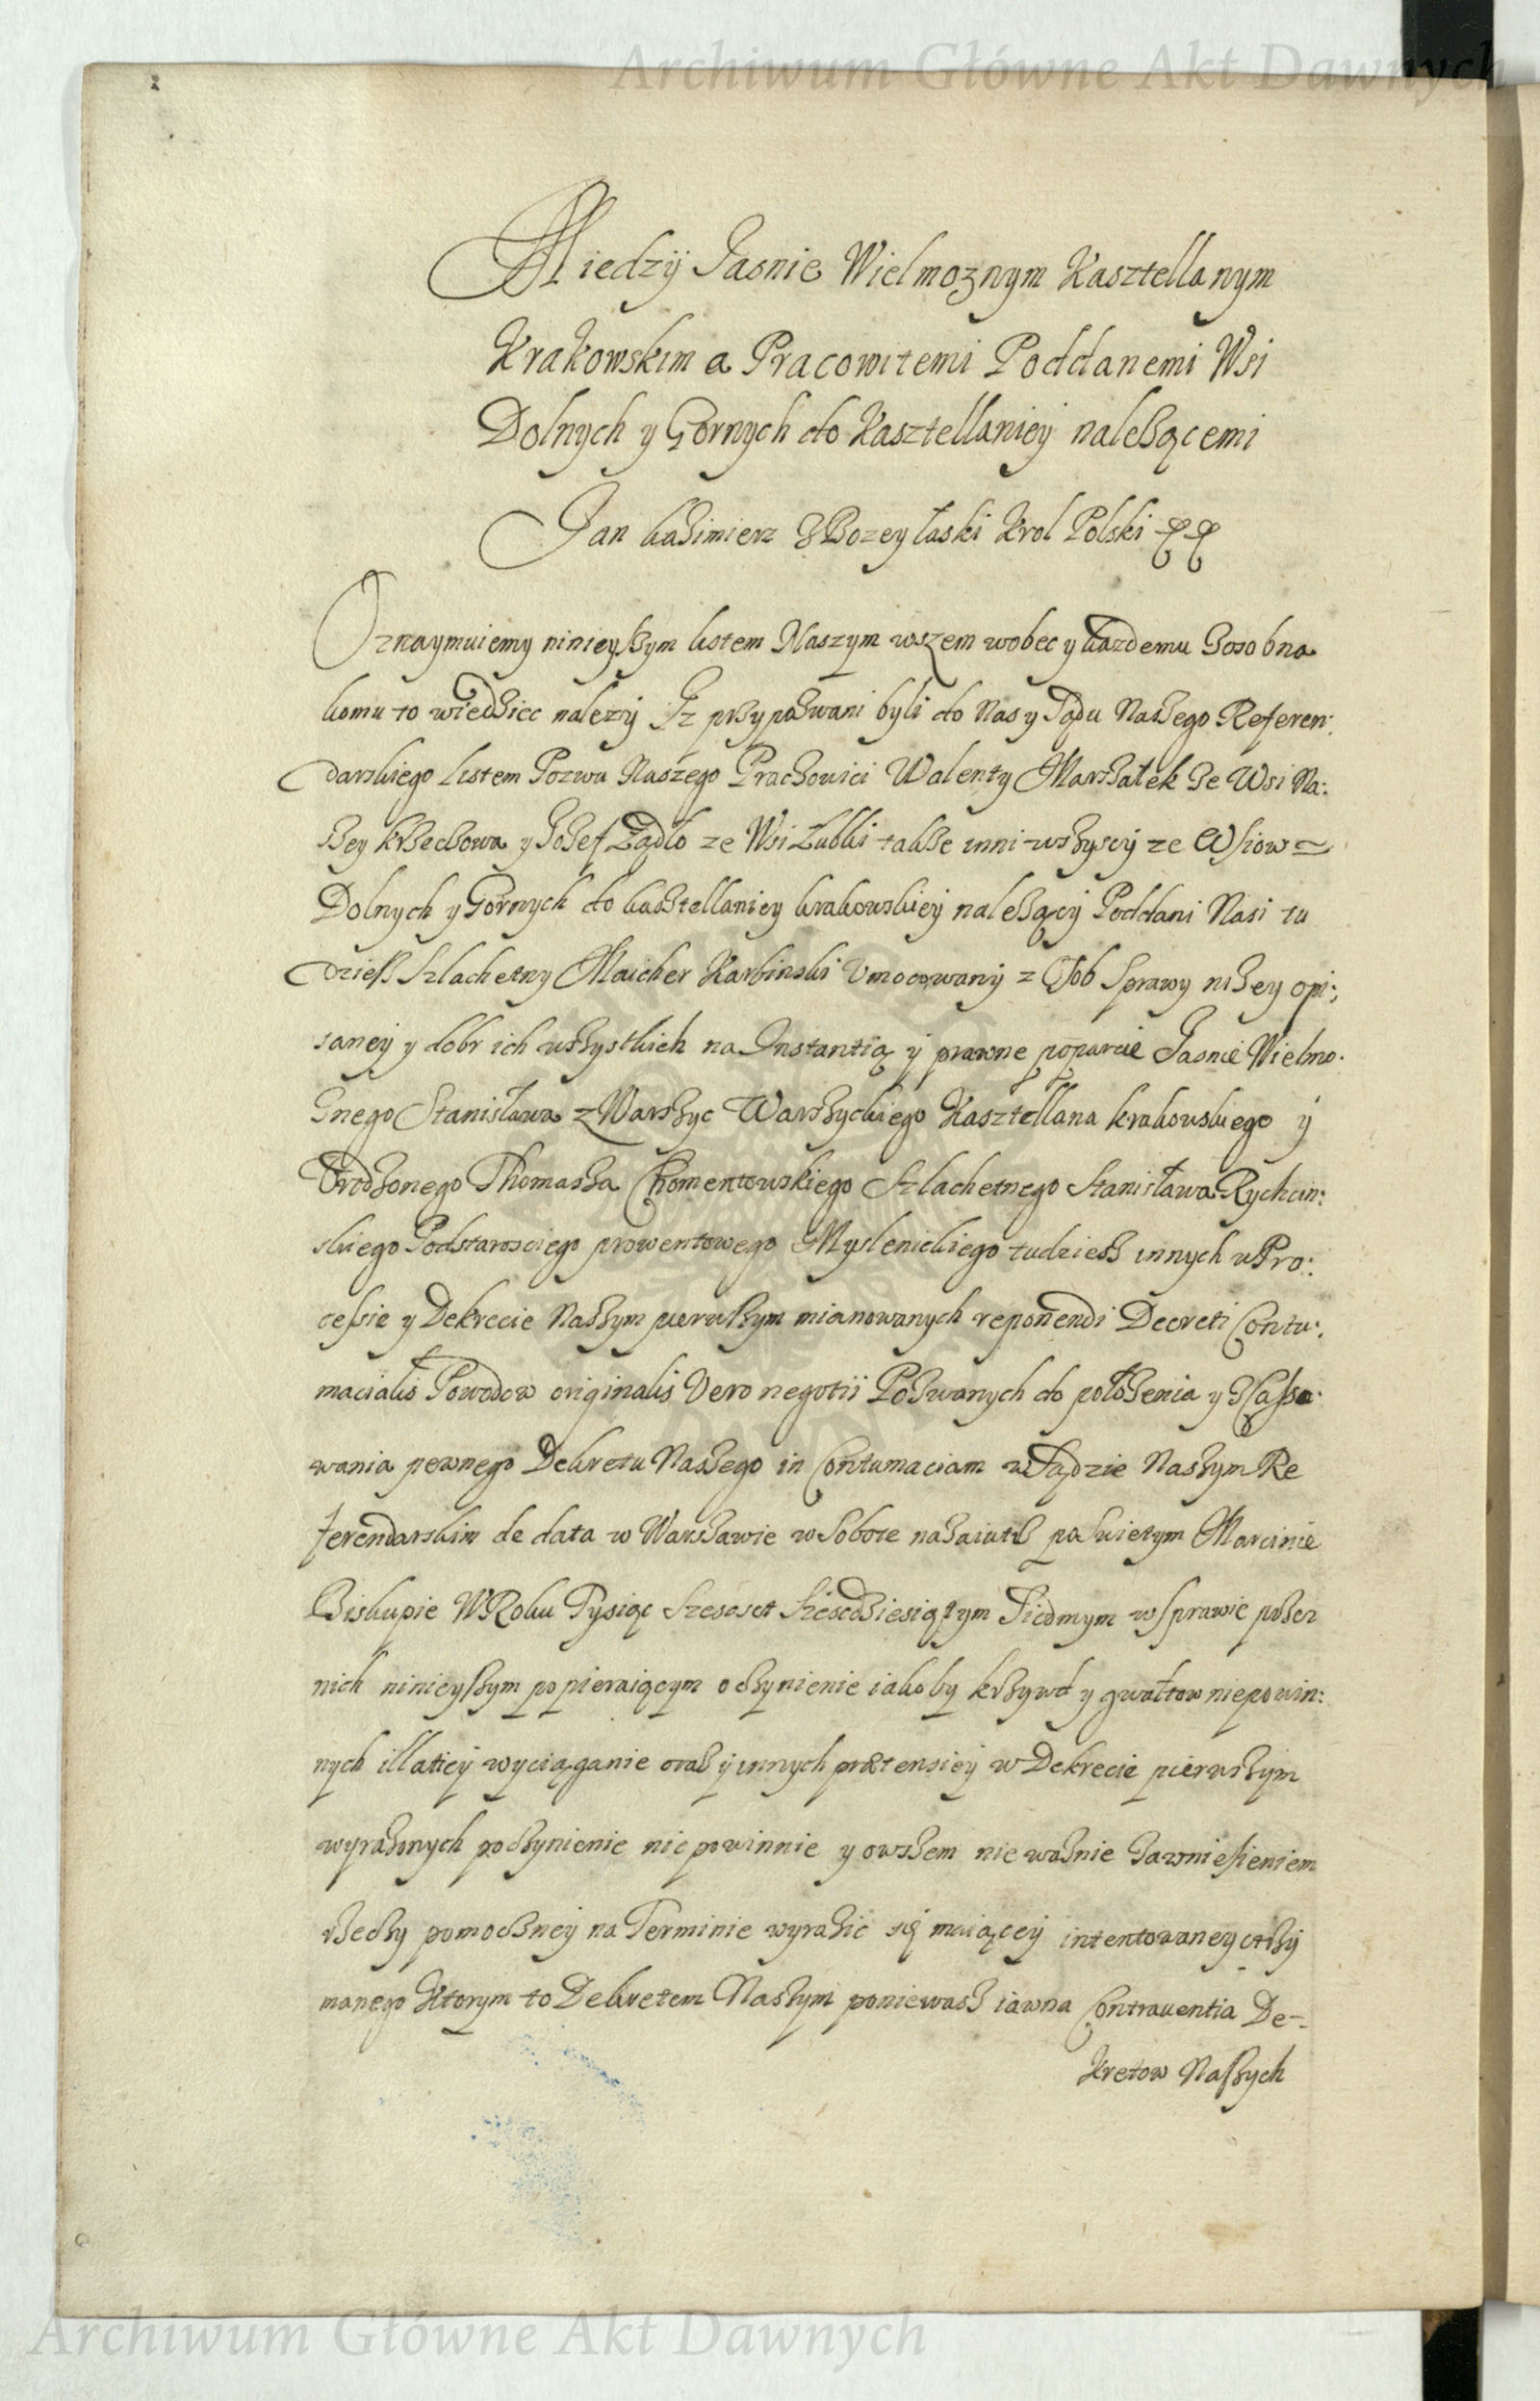 Archiwum Główne Akt Dawnych
Miedzÿ Jasnie Wielmoznym Kasztellanym
Krakowskim a Pracowitemi Poddanemi Wsi
Dolnych y Gornych do Kasztellaniey nalezącemi
Jan Kazimierz z Bozey łaski Krol Polski
Oznaymuiemy ninieyszym listem Naszym wszem wobec y kazdemu zosobna
komu to wiedziec nalezy Iz przypozwani byli do Nas y Sądu Naszego Referen:
darskiego listem Pozwu Naszego Prachowici Walenty Marszałek ze Wsi Na:
szey Krzeczowa y Jozef Ządło ze Wsi Lubli takze inni wszyscy ze Wsiow
Dolnych y Gornych do kasztellaniey krakowskiey nalezący Poddani Nasi tu
dziesz Szlachetny Maicher Karbinski Vmocowany z Osob Sprawy nizey opi:
saney y dobr ich wszystkich na Instantią y prawne poparcie Jasnie Wielmo:
znego Stanisława z Warszyc Warszyckiego Kasztellana krakowskiego ÿ
Vrodzonego Thomasza Chomentowskiego Szlachetnego Stanisława Rychcin:
skiego Podstarosciego prowentowego Myslenickiego tudziesz innych w Pro:
cessie y Dekrecie Naszym pierwszym mianowanych reponendi Decreti Contu:
macialis Powodow originalis Vero negotii Pozwanych do połozenia y Skasso:
wania pewnego Dekretu Naszego in Contumaciam w Sądzie Naszym Re
ferendarskim de data w Warszawie w Sobote nazaiutrz po Swietym Marcinie
Biskupie W Roku Tysiąc Szescset Szescdziesiątym Siodmym w sprawie przez
nich ninieyszym popieraiącym oczynienie iakoby krzywd y gwałtow niepowin:
nych illatiey wyciąganie oraz ÿ innych prætensiey w Dekrecie pierwszym
wyrazonych poczynienie niepowinnie y owszem nie waznie zawniesieniem
rzeczy pomoczney na Terminie wyrazic się maiącey intentowaney otrzy
manego Ktorym to Dekretem Naszym poniewasz iawna Contrauentia De-
kretow Naszych
Archiwum Główne Akt Dawnych